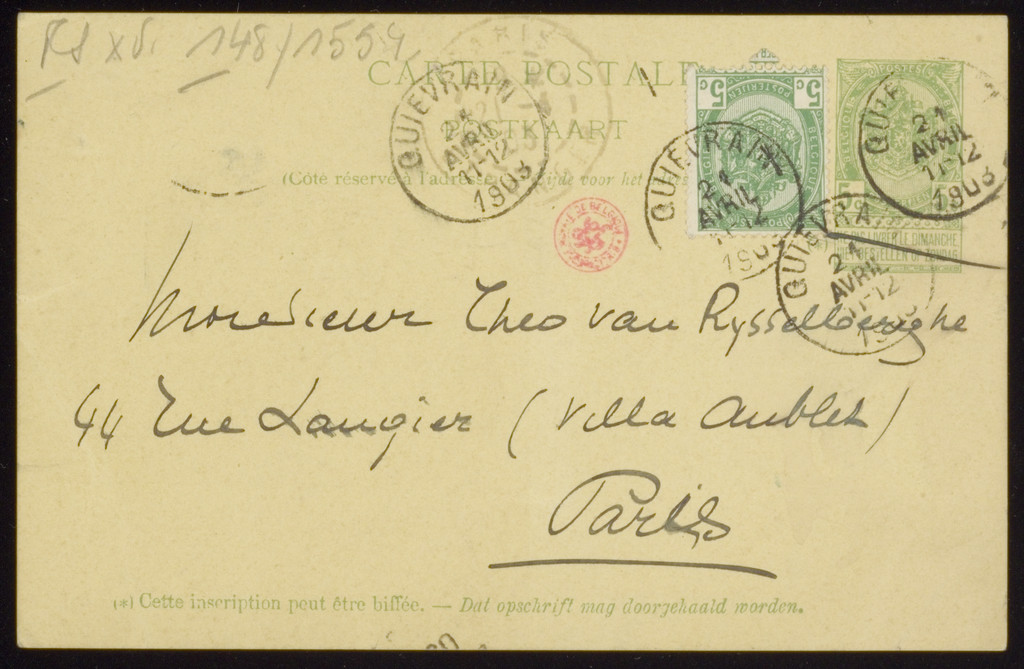 FS XV 148/1554
CARTE POSTALE
POSTKAART
(Côté réservé à l'adresse. Zijde voor het
QUIEVRAIN
21
AVRIL
11-12
1903
5 c
5 c
POSTERIJEN
BELGIQUE
QUIEVRAIN
21
AVRIL
11-12
1903
POSTES
BELGIQUE
5
NE PAS LIVRER LE DIMANCHE
NIET BESTELLEN OP ZONDAG
QUIE
21
AVRIL
11-12
1903
QUIEVRA
21
AVRIL
11-12
1903
DE BELGIQUE
Monsieur Theo van Rysselberghe
44 Rue Laugier (Villa Aublet)
Paris
(*) Cette inscription peut être biffée. — Dat opschrift mag doorgehaald worden.